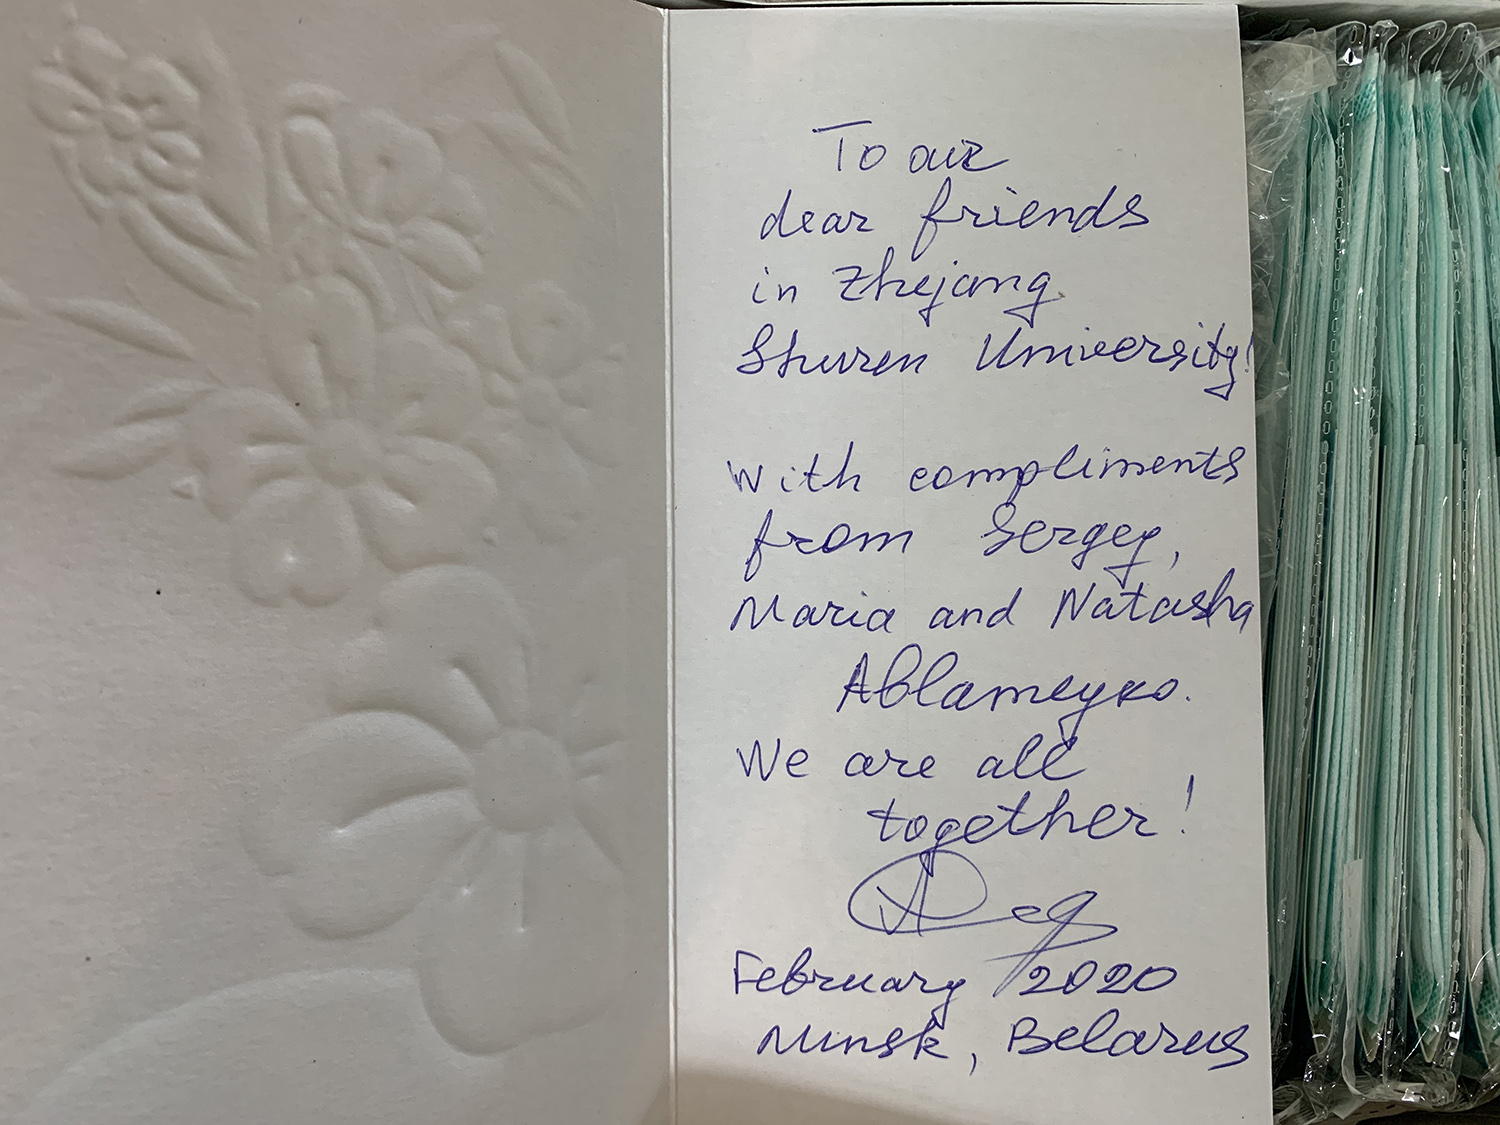 To our
dear friends
in Zhejang
Shuren University!
With compliments
from Sergey,
Maria and Natasha
Ablameyko.
We are all
together!
February 2020
Minsk, Belarus